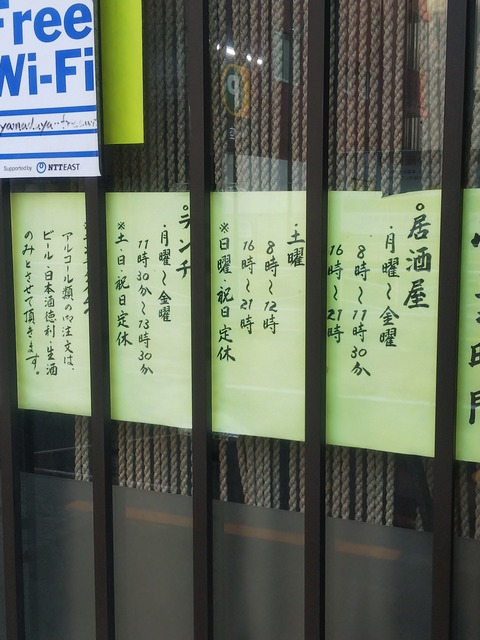 Free
Wi-Fi
Supported by NTT EAST
°居酒屋
・月曜〜金曜
8時〜11時30分
16時〜21時
・土曜
8時〜12時
16時〜21時
※日曜・祝日定休
°ランチ
・月曜〜金曜
11時30分〜13時30分
※土・日・祝日定休
アルコール類の内注文は、
ビール・日本酒徳利・生酒
のみとさせて頂きます。